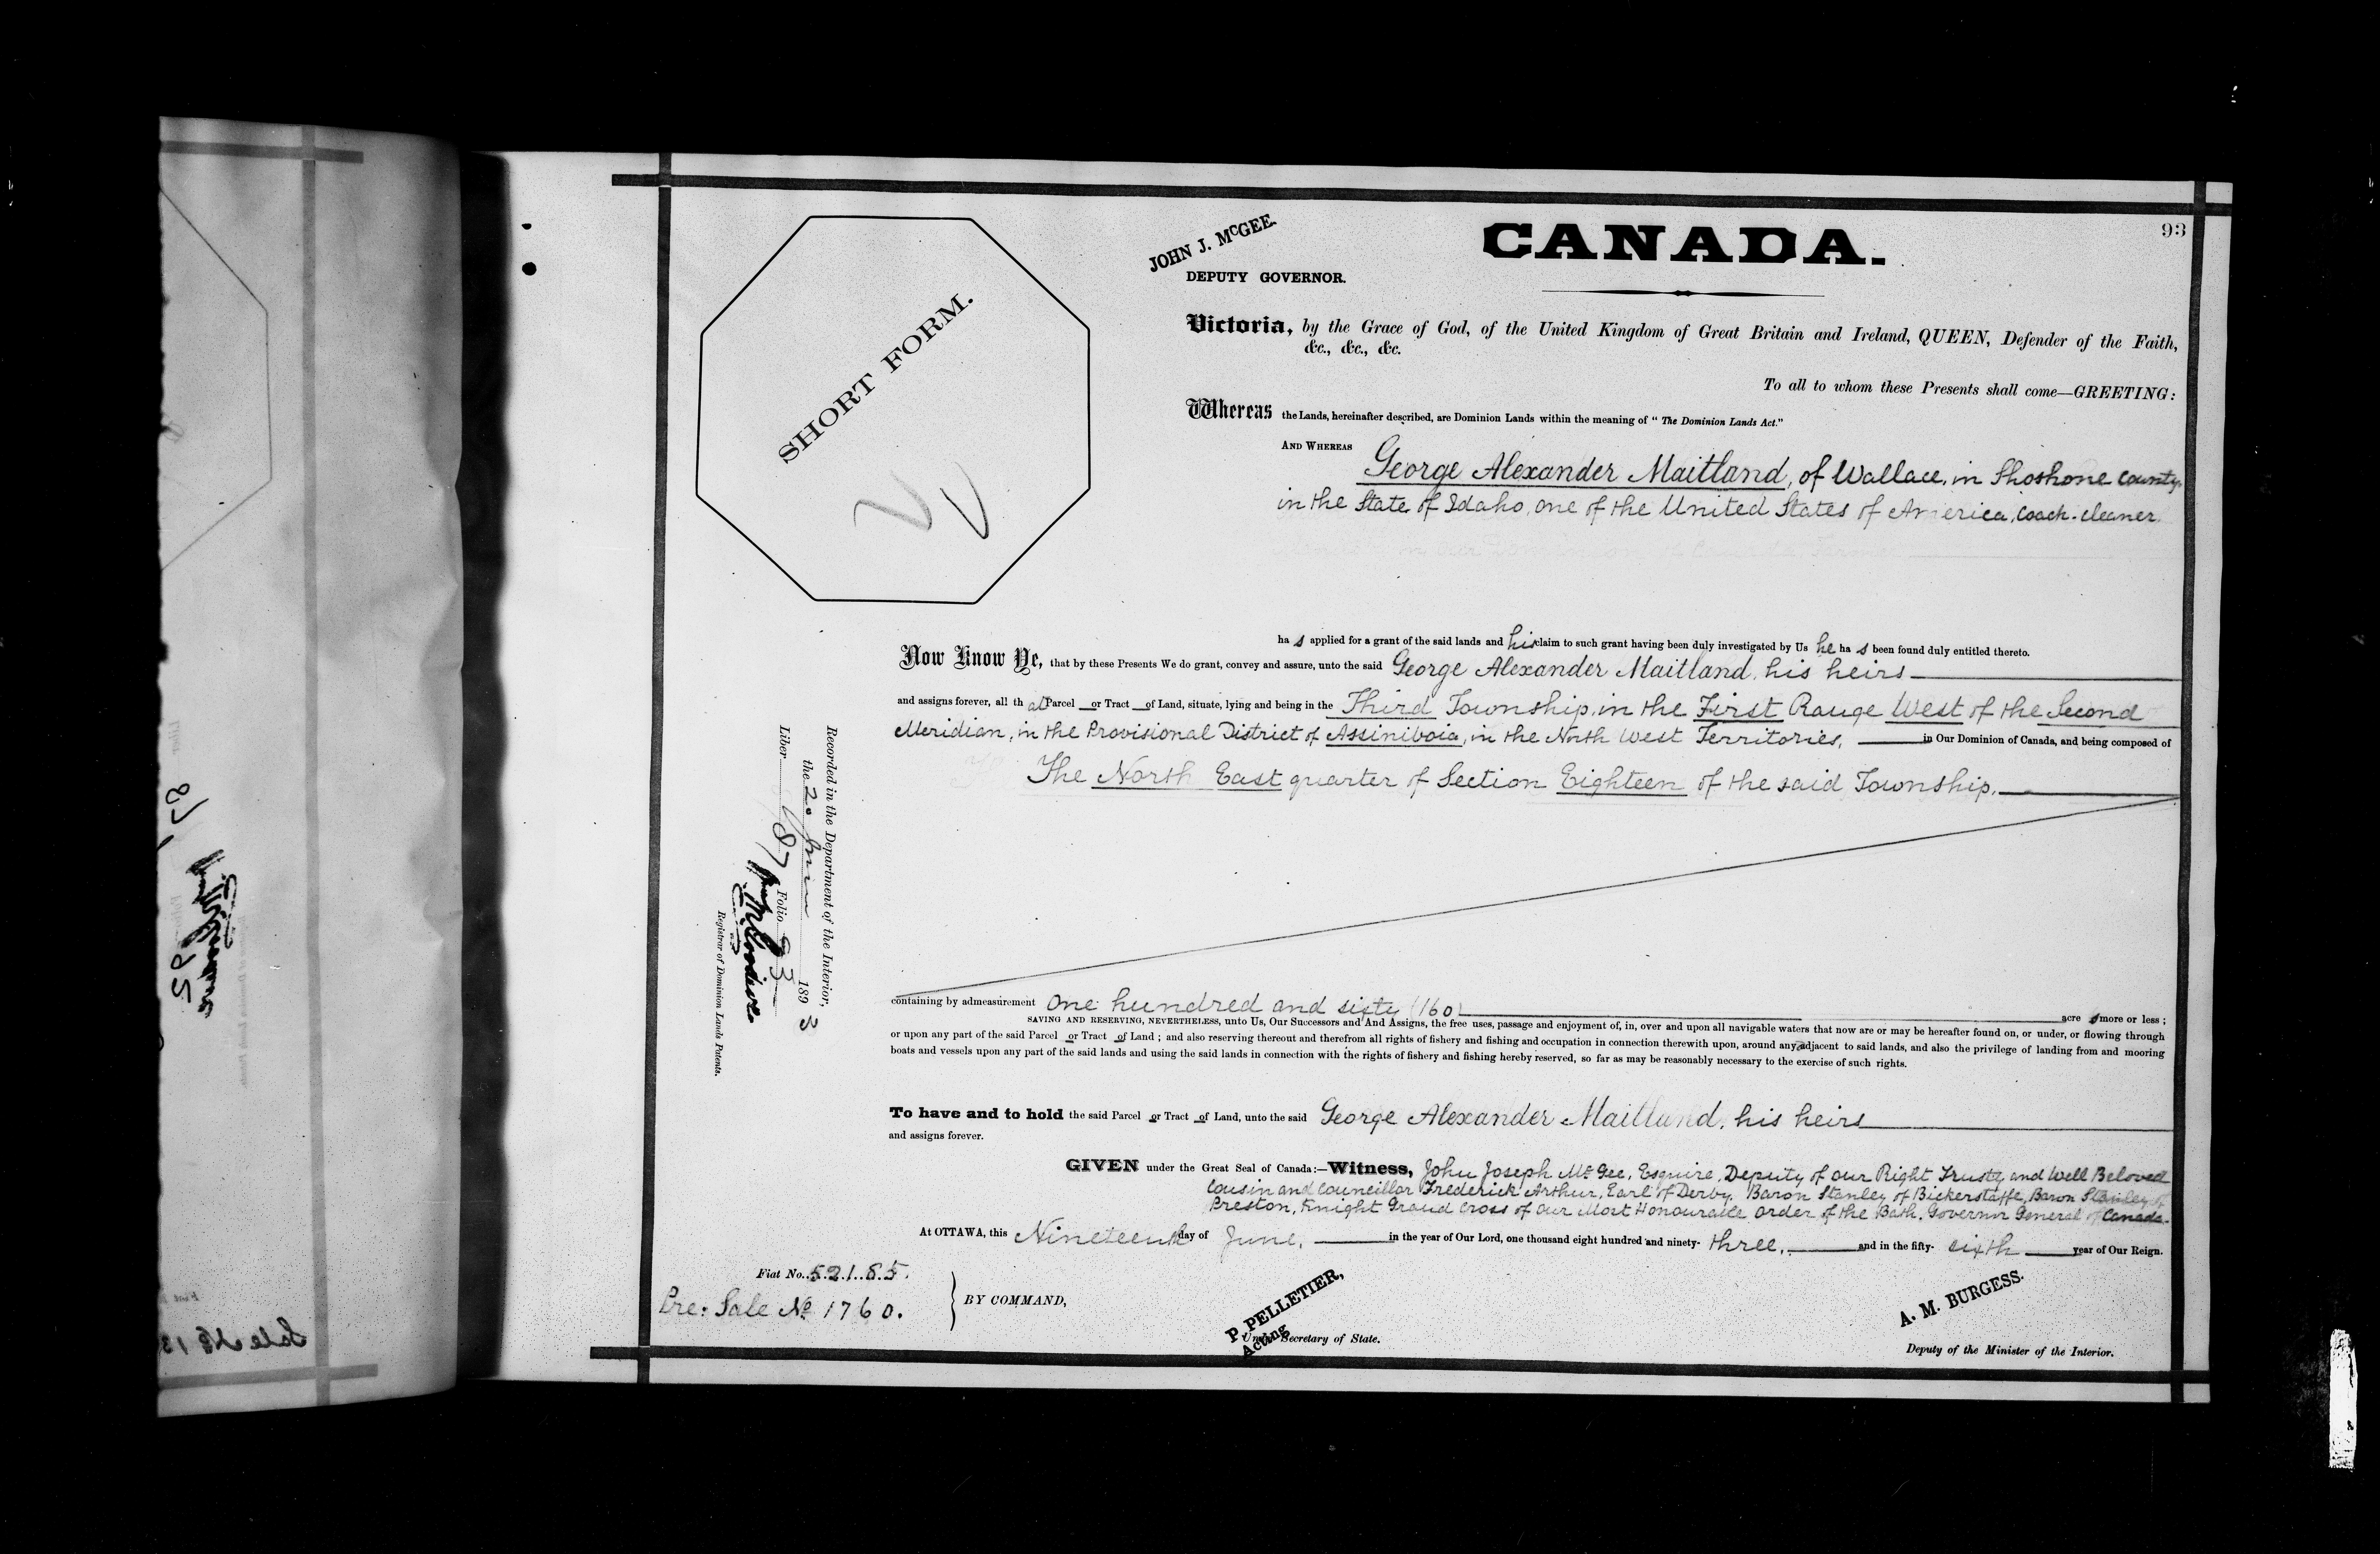 93
CANADA.
JOHN J. McGEE.
DEPUTY GOVERNOR.
SHORT FORM.
Victoria, by the Grace of God, of the United Kingdom of Great Britain and Ireland, QUEEN, Defender of the Faith,
&c., &c., &c.
To all to whom these Presents shall come—GREETING:
Whereas the Lands, hereinafter described, are Dominion Lands within the meaning of " The Dominion Lands Act."
AND WHEREAS George Alexander Maitland, of Wallace, in Shoshone County,
in the State of Idaho, one of the United States of America, Coach-cleaner
has applied for a grant of the said lands and his claim to such grant having been duly investigated by Us he has been found duly entitled thereto.
Now Know Ye, that by these Presents We do grant, convey and assure, unto the said George Alexander Maitland, his heirs
and assigns forever, all that Parcel or Tract of Land, situate, lying and being in the Third Township, in the First Range West of the Second
Meridian, in the Provisional District of Assiniboia, in the North West Territories, in Our Dominion of Canada, and being composed of
The North East quarter of Section Eighteen of the said Township.
containing by admeasurement one hundred and sixty (160) acres more or less ;
SAVING AND RESERVING, NEVERTHELESS, unto Us, Our Successors and And Assigns, the free uses, passage and enjoyment of, in, over and upon all navigable waters that now are or may be hereafter found on, or under, or flowing through
or upon any part of the said Parcel or Tract of Land ; and also reserving thereout and therefrom all rights of fishery and fishing and occupation in connection therewith upon, around any adjacent to said lands, and also the privilege of landing from and mooring
boats and vessels upon any part of the said lands and using the said lands in connection with the rights of fishery and fishing hereby reserved, so far as may be reasonably necessary to the exercise of such rights.
To have and to hold the said Parcel or Tract of Land, unto the said George Alexander Maitland, his heirs
and assigns forever.
GIVEN under the Great Seal of Canada:—Witness, John Joseph McGee, Esquire, Deputy of our Right Trusty and Well Beloved
Cousin and Councillor Frederick Arthur, Earl of Derby, Baron Stanley of Bickerstaffe, Baron Stanley of
Preston, Knight Grand Cross of our Most Honourable Order of the Bath, Governor General of Canada.
At OTTAWA, this Nineteenth day of June, in the year of Our Lord, one thousand eight hundred and ninety- three, and in the fifty- sixth year of Our Reign.
Fiat No. 52185.
Pre: Sale No 1760.
BY COMMAND,
P. PELLETIER,
Acting
Under Secretary of State.
A. M. BURGESS.
Deputy of the Minister of the Interior.
Recorded in the Department of the Interior,
the 20 June 1893
Liber 87 Folio 93
Registrar of Dominion Lands Patents.